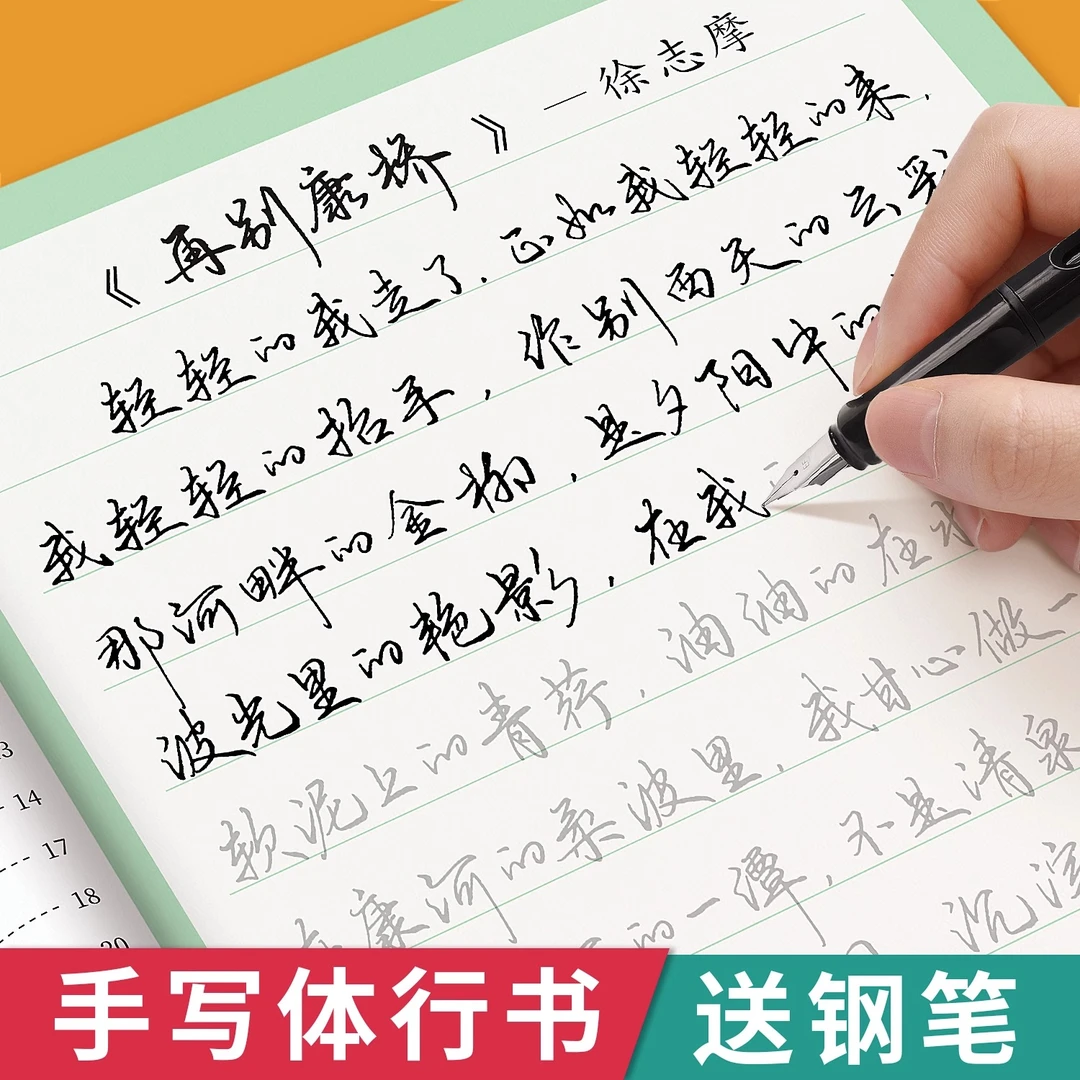 《再别康桥》—徐志摩
轻轻的我走了.正如我轻轻的来.
我轻轻的招手,作别西天的云彩
那河畔的金柳,是夕阳中的
波光里的艳影,在我
软泥上的青荇,油油的在水
康河的柔波里,我甘心做一
的一潭,不是清泉
沉淀
13
14
17
18
20
手写体行书
送钢笔